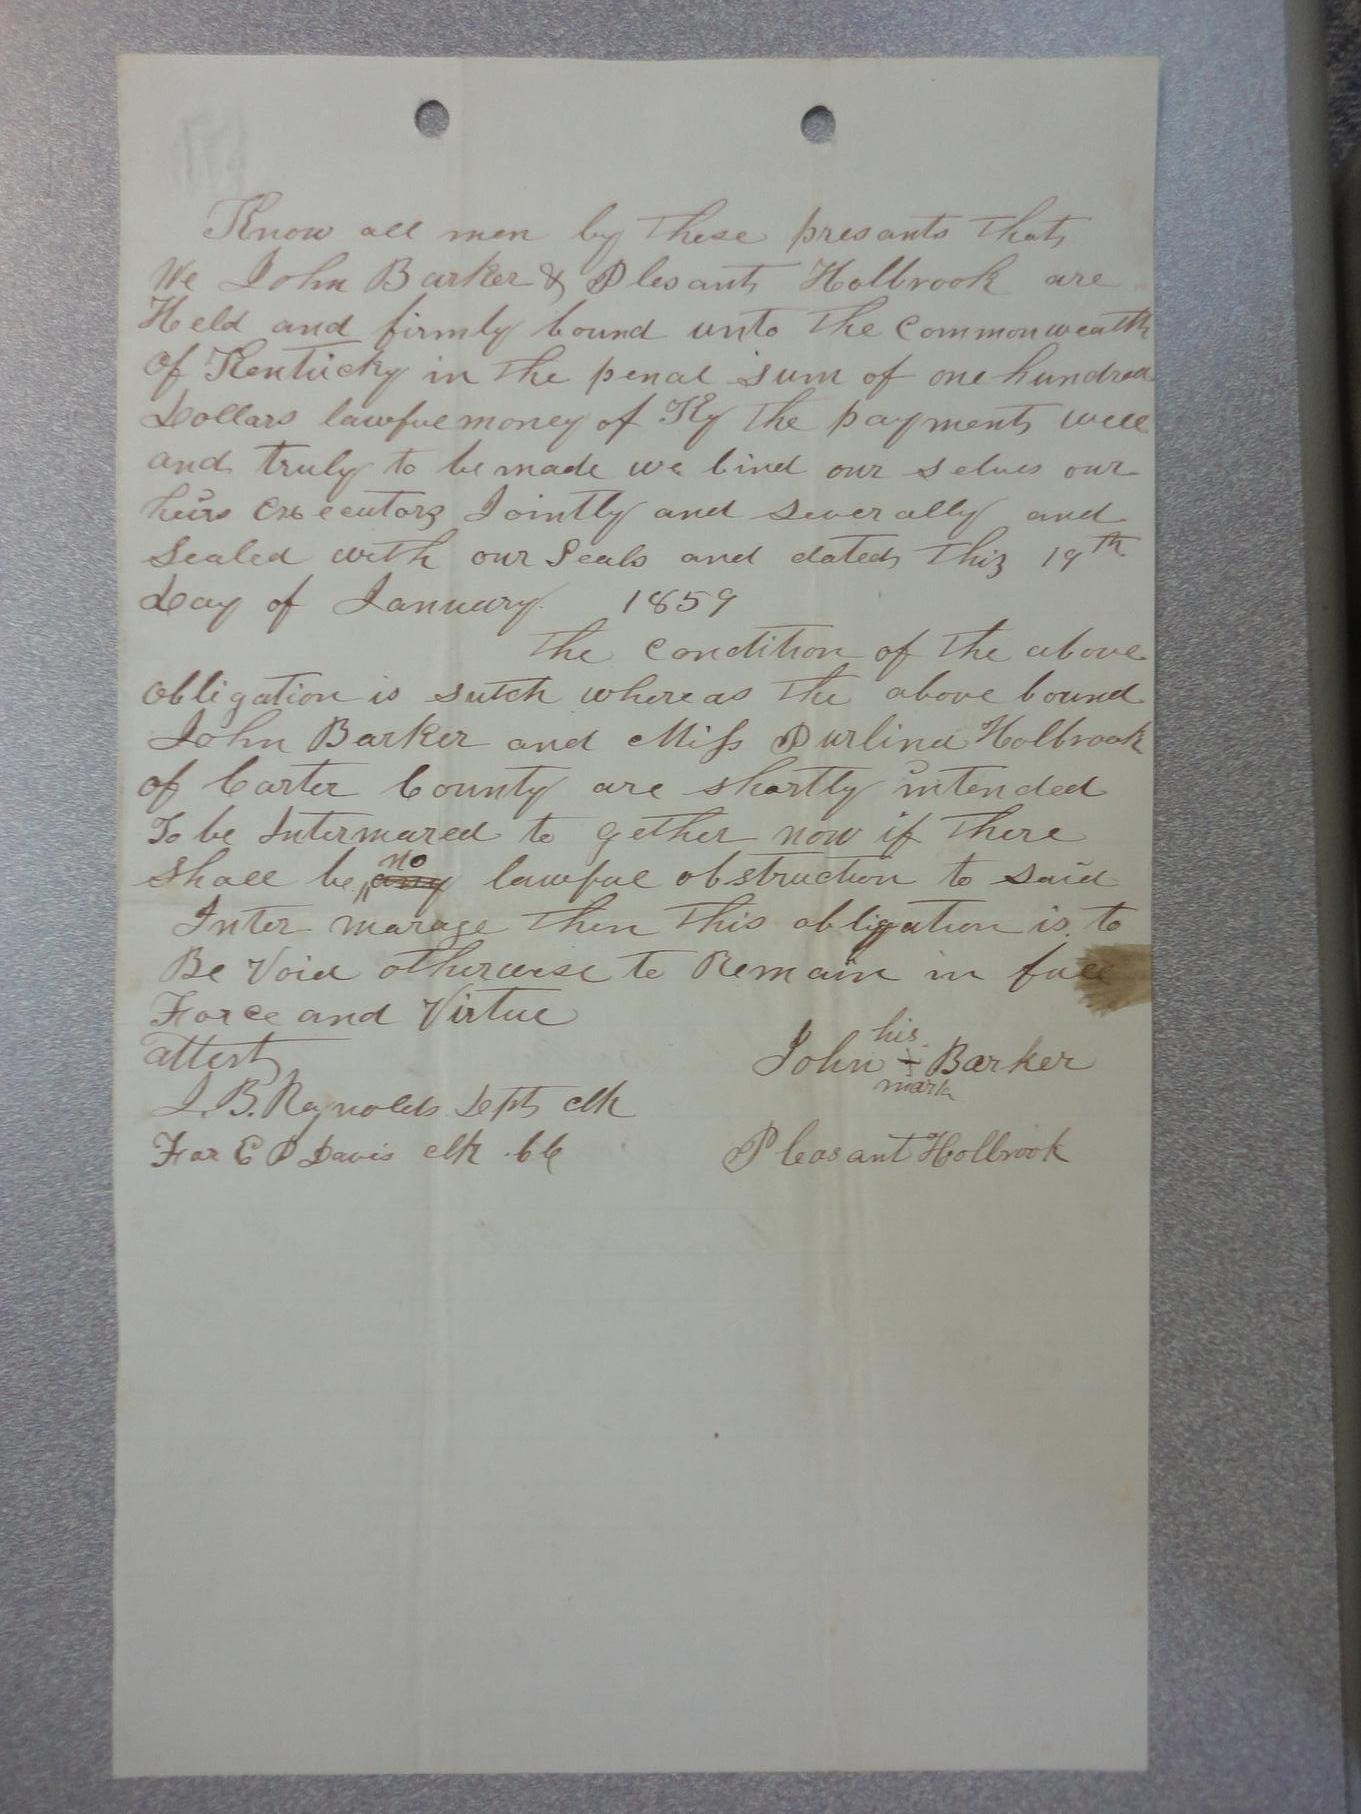 Know all men by these presants that
We John Barker & Plesant Holbrook are
Held and firmly bound unto the Commonwealth
of Kentucky in the penal sum of one hundred
Dollars lawful money of Ky the payment well
and truly to be made we bind our selves our
heirs Executors Jointly and severally and
Sealed with our Seals and dated this 19th
Day of January 1859
The Condition of the above
obligation is sutch whereas the above bound
John Barker and Miss Purlina Holbrook
of Carter County are shortly intended
To be Intermared to gether now if there
shall be any no lawful obstruction to said
Inter marage then this obligation is to
Be Void otherwise to Remain in full
Force and Virtue
attest
J. B. Reynolds Dept clk
For E P Davis clk
John his + mark Barker
Pleasant Holbrook